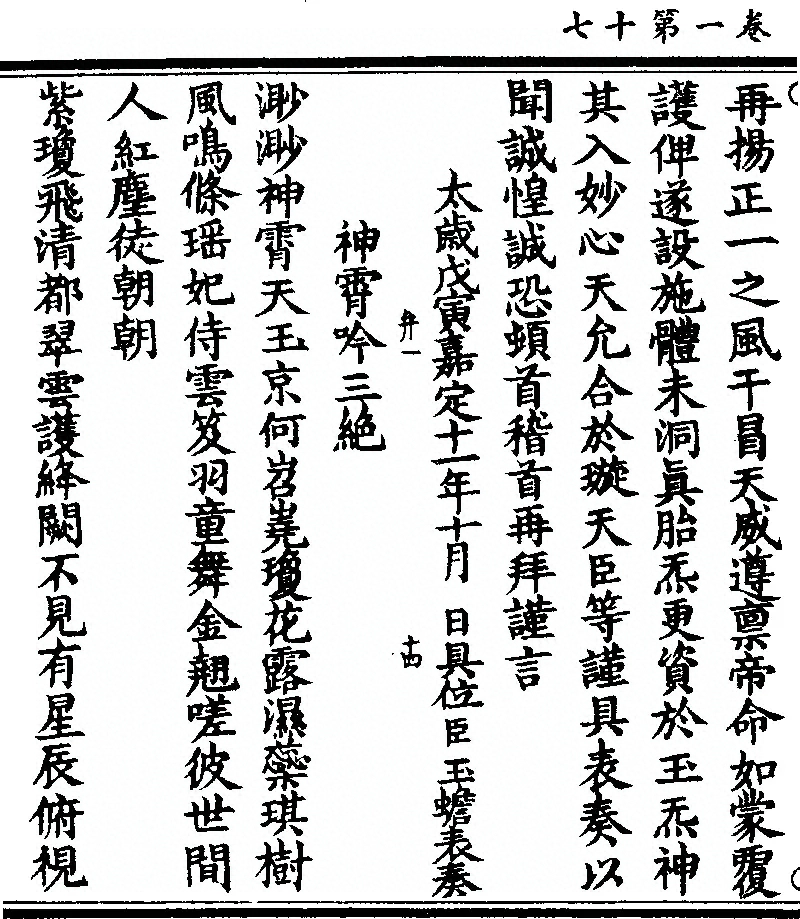 卷一第十七
再揚正一之風干冒天威遵禀帝命如蒙覆
護俾遂設施體未洞眞胎炁更資於玉炁神
其入妙心天允合於璇天臣等謹具表奏以
聞誠惶誠恐頓首稽首再拜謹言
太歲戊寅嘉定十一年十月 日具位臣玉蟾表奏
弁一 十四
神霄吟三絶
渺渺神霄天玉京何岧嶤瓊花露濕蘂琪樹
風鳴條瑶妃侍雲笈羽童舞金翹嗟彼世間
人紅塵徒朝朝
紫瓊飛清都翠雲護絳闕不見有星辰俯視